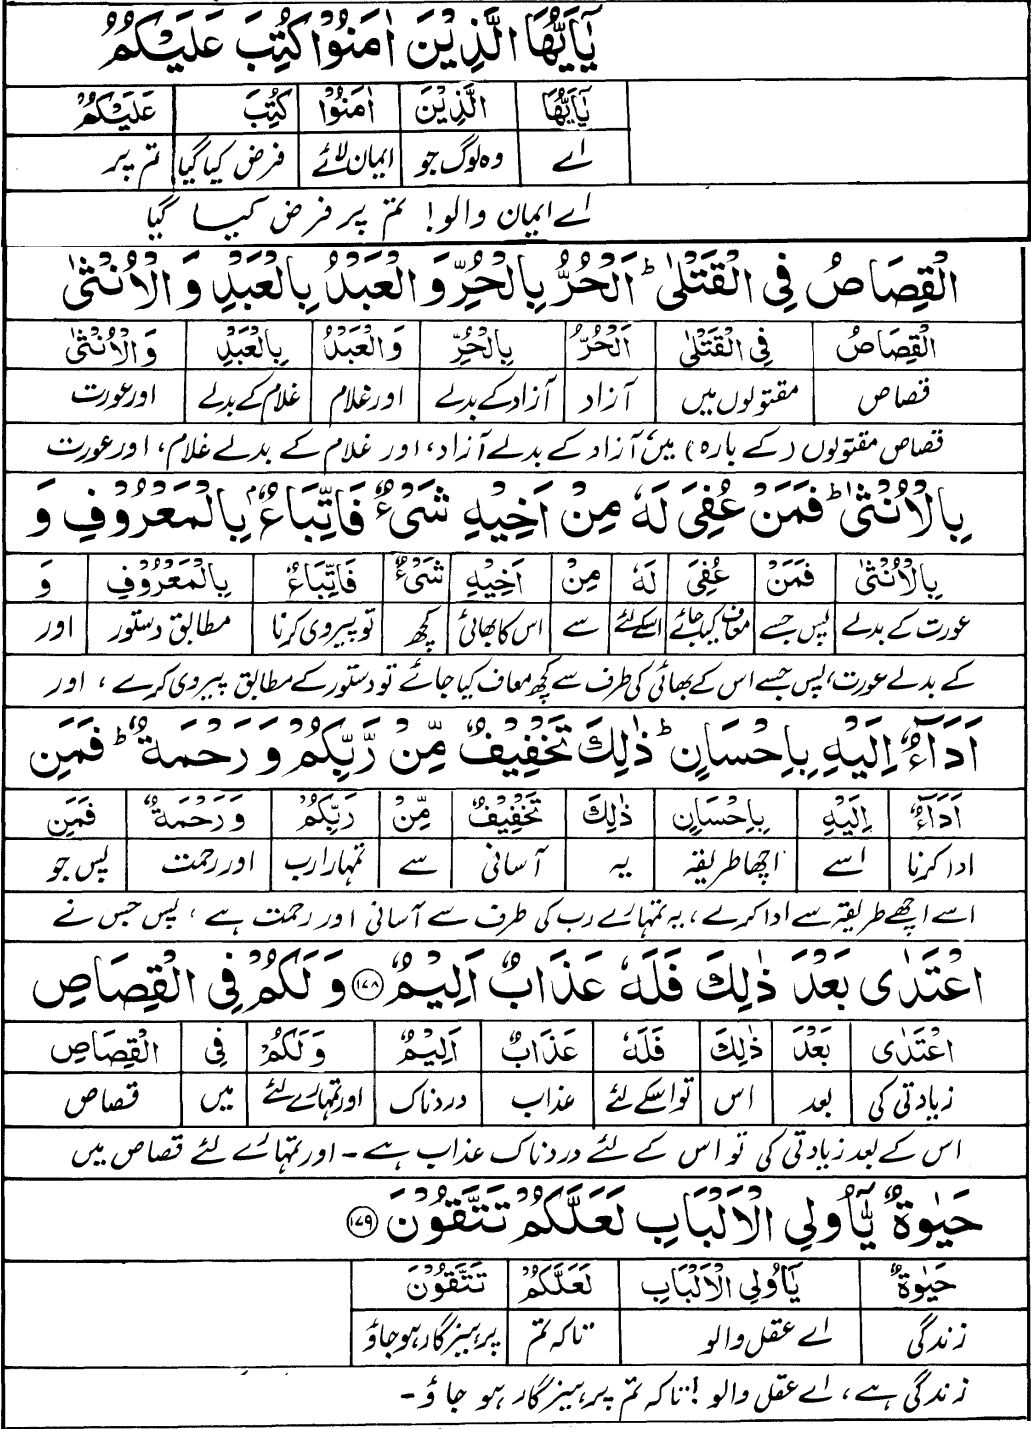 يٰۤاَيُّهَا الَّذِيْنَ اٰمَنُوْا كُتِبَ عَلَيْكُمُ
يٰۤاَيُّهَا الَّذِيْنَ اٰمَنُوْا كُتِبَ عَلَيْكُمُ
اے وہ لوگ جو ایمان لائے فرض کیا گیا تم پر
اے ایمان والو! تم پر فرض کیا گیا
الْقِصَاصُ فِي الْقَتْلٰى ؕ اَلْحُرُّ بِالْحُرِّ وَ الْعَبْدُ بِالْعَبْدِ وَ الْاُنْثٰى
الْقِصَاصُ فِي الْقَتْلٰى اَلْحُرُّ بِالْحُرِّ وَالْعَبْدُ بِالْعَبْدِ وَالْاُنْثٰى
قصاص مقتولوں میں آزاد آزاد کے بدلے اور غلام غلام کے بدلے اور عورت
قصاص مقتولوں (کے بارہ) میں، آزاد کے بدلے آزاد، اور غلام کے بدلے غلام، اور عورت
بِالْاُنْثٰى ؕ فَمَنْ عُفِيَ لَهٗ مِنْ اَخِيْهِ شَيْءٌ فَاتِّبَاعٌۢ بِالْمَعْرُوْفِ وَ
بِالْاُنْثٰى فَمَنْ عُفِيَ لَهٗ مِنْ اَخِيْهِ شَيْءٌ فَاتِّبَاعٌ بِالْمَعْرُوْفِ وَ
عورت کے بدلے پس جسے معاف کیا جائے اسکے لئے سے اس کا بھائی کچھ تو پیروی کرنا مطابق دستور اور
کے بدلے عورت، پس جسے اس کے بھائی کی طرف سے کچھ معاف کیا جائے تو دستور کے مطابق پیروی کرے، اور
اَدَآءٌ اِلَيْهِ بِاِحْسَانٍ ؕ ذٰلِكَ تَخْفِيْفٌ مِّنْ رَّبِّكُمْ وَ رَحْمَةٌ ؕ فَمَنِ
اَدَآءٌ اِلَيْهِ بِاِحْسَانٍ ذٰلِكَ تَخْفِيْفٌ مِّنْ رَبِّكُمْ وَرَحْمَةٌ فَمَنِ
ادا کرنا اسے اچھا طریقہ یہ آسانی سے تمہارا رب اور رحمت پس جو
اسے اچھے طریقہ سے ادا کرے، یہ تمہارے رب کی طرف سے آسانی اور رحمت ہے، پس جس نے
اعْتَدٰى بَعْدَ ذٰلِكَ فَلَهٗ عَذَابٌ اَلِيْمٌ ۝۱۷۸ وَ لَكُمْ فِي الْقِصَاصِ
اعْتَدٰى بَعْدَ ذٰلِكَ فَلَهٗ عَذَابٌ اَلِيْمٌ وَلَكُمْ فِي الْقِصَاصِ
زیادتی کی بعد اس تو اسکے لئے عذاب دردناک اور تمہارے لئے میں قصاص
اس کے بعد زیادتی کی تو اس کے لئے دردناک عذاب ہے - اور تمہارے لئے قصاص میں
حَيٰوةٌ يّٰۤاُولِي الْاَلْبَابِ لَعَلَّكُمْ تَتَّقُوْنَ ۝۱۷۹
حَيٰوةٌ يٰۤاُولِي الْاَلْبَابِ لَعَلَّكُمْ تَتَّقُوْنَ
زندگی اے عقل والو تاکہ تم پرہیزگار ہو جاؤ
زندگی ہے، اے عقل والو! تاکہ تم پرہیزگار ہو جاؤ -